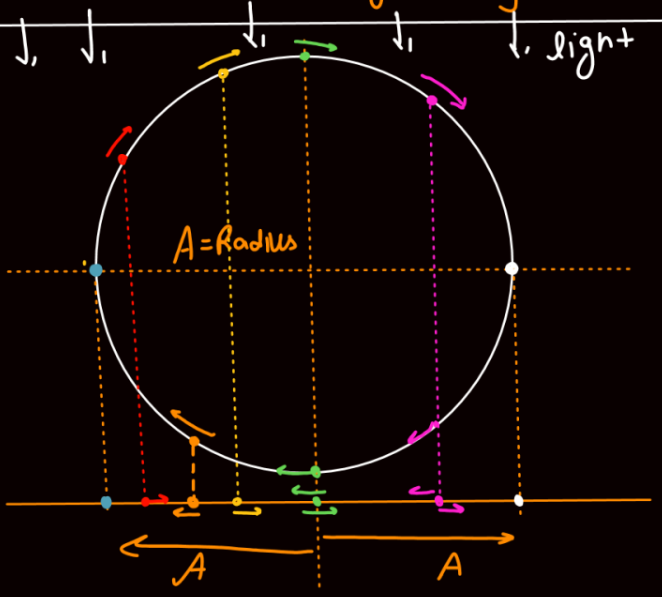 light
A = Radius
A
A